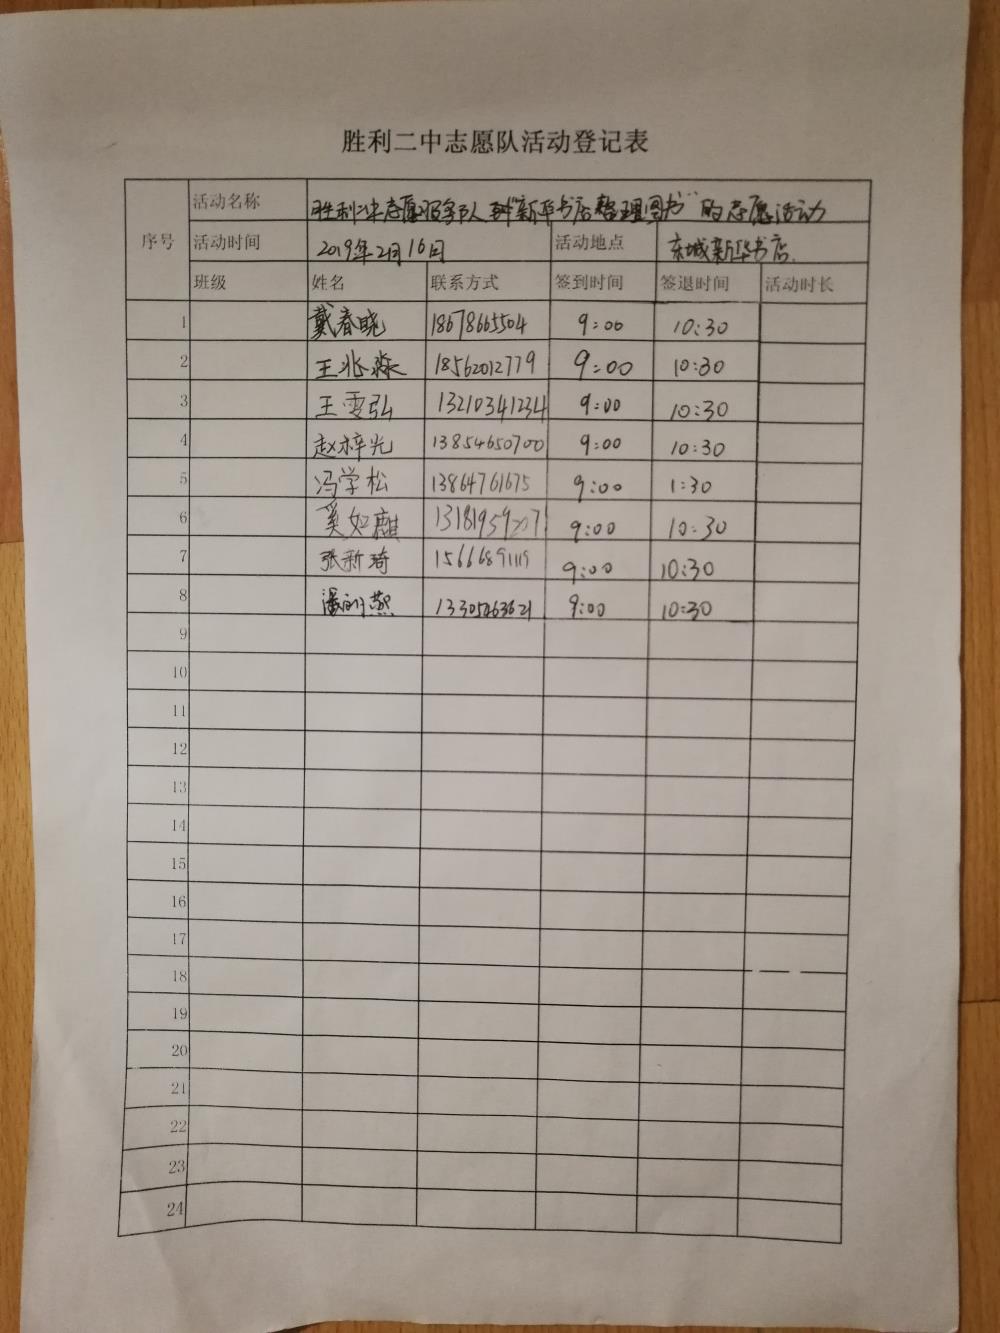 胜利二中志愿队活动登记表
序号 活动名称 胜利二中志愿服务队到"新华书店整理图书"的志愿活动
活动时间 2019年2月16日 活动地点 东城新华书店.
班级 姓名 联系方式 签到时间 签退时间 活动时长
1 戴春晓 18678665504 9:00 10:30
2 王兆淼 18562012779 9:00 10:30
3 王雪弘 13210341234 9:00 10:30
4 赵梓光 13854650700 9:00 10:30
5 冯学松 13864761675 9:00 1:30
6 奚如麒 13181959207 9:00 10:30
7 张新琦 15666891119 9:00 10:30
8 13305463621 9:00 10:30
9
10
11
12
13
14
15
16
17
18
19
20
21
22
23
24